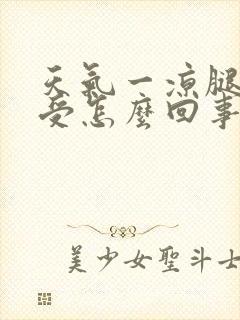 天氣一凉腿
受怎麼回事
美少女聖斗士